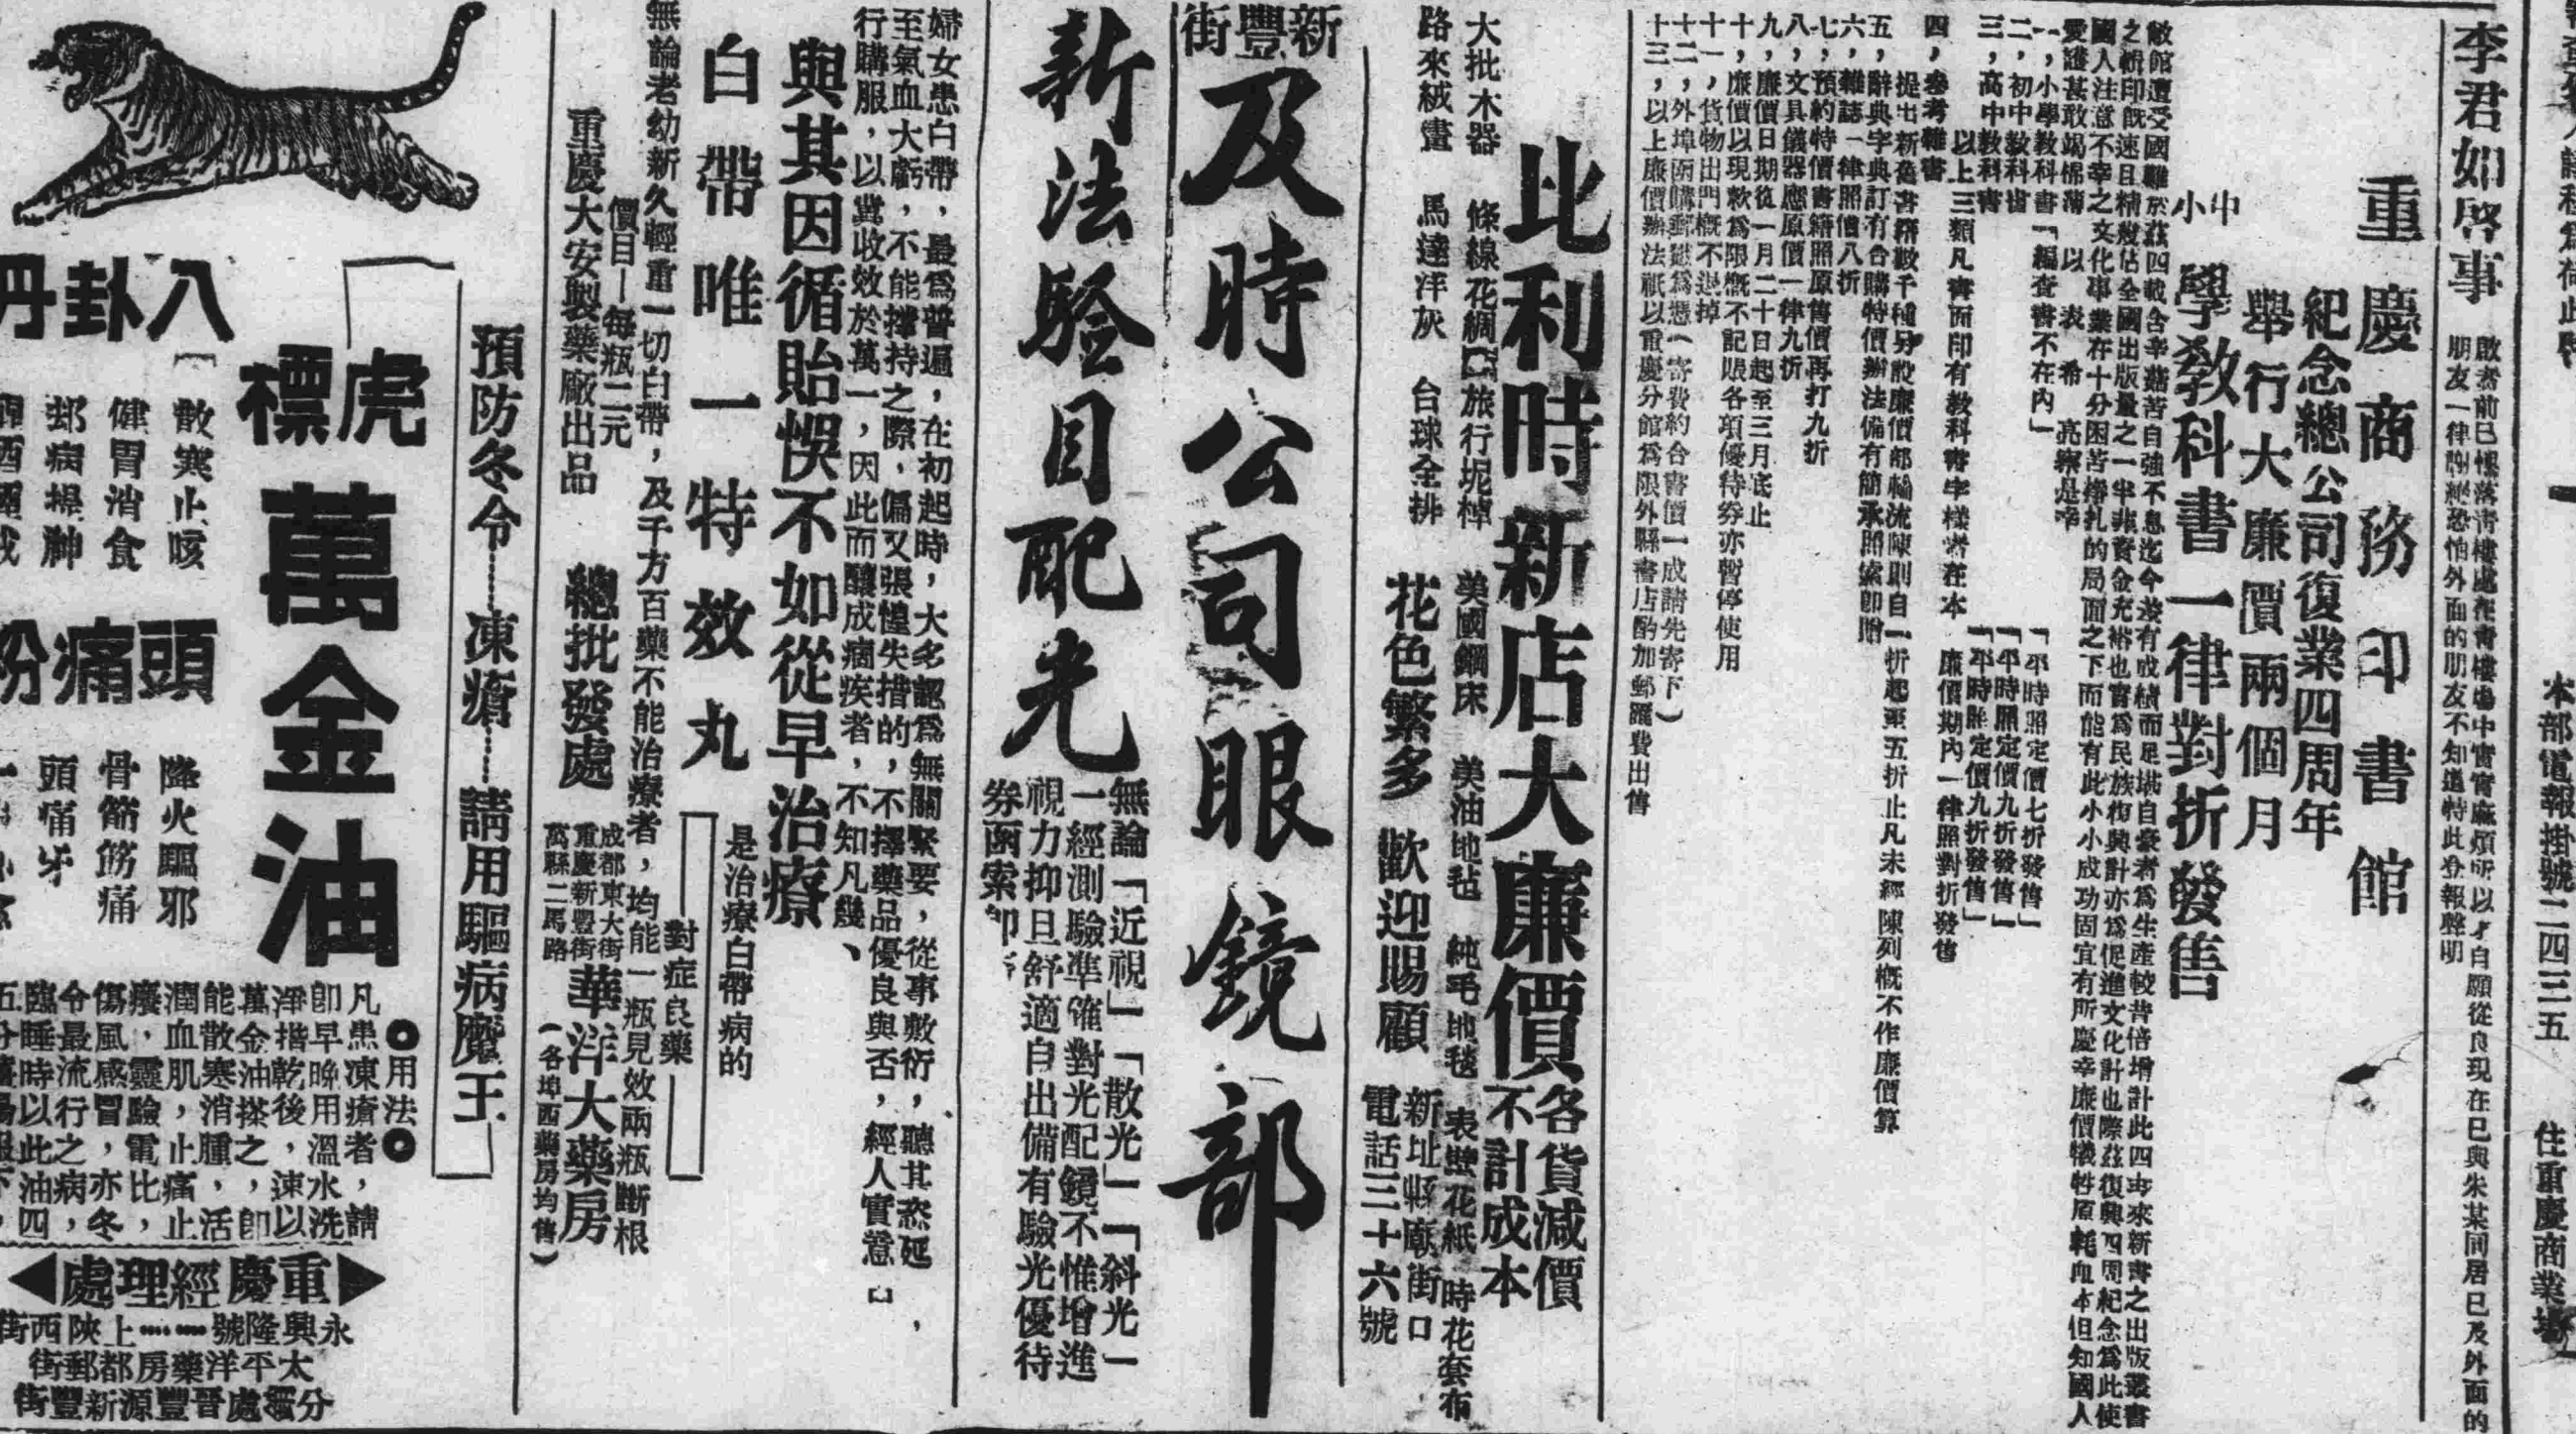 本部電報掛號二四三五
住重慶商業場
李君如啓事
朋友一律謝絕恐怕外面的朋友不知道特此登報聲明
重慶商務印書館
紀念總公司復業四周年
舉行大廉價兩個月
中小學教科書一律對折發售
敝館遭受國難於茲四載含辛茹苦自強不息迄今差有成績而足堪自豪者為生產較昔倍增計此四年來新書之出版叢書
之輯印既速且精幾佔全國出版量之一半非資金充裕也實為民族復興計亦為促進文化計也際茲復興四周紀念為此使
國人注意不幸之文化事業在十分困苦掙扎的局面之下而能有此小小成功固宜有所慶幸廉價犧牲原耗血本但知國人
愛護甚敢竭棉薄 以 表 希 亮察是幸
一，小學教科書「編查書不在內」 「平時照定價七折發售」
二，初中教科書 「平時照定價九折發售」
三，高中教科書 「平時照定價九折發售」
以上三類凡書面印有教科書字樣者在本 廉價期內一律照對折發售
四，參考雜書
提出新舊書籍數千種另設廉價部輪流陳列自一折起至五折止凡未經陳列概不作廉價算
五，辭典字典訂有合購特價辦法備有簡章承照索即贈
六，雜誌一律照價八折
七，預約特價書籍照原售價再打九折
八，文具儀器應原價一律九折
九，廉價日期從一月二十日起至三月底止
十，廉價以現款為限概不記賬各項優待券亦暫停使用
十一，貨物出門概不退掉
十二，外埠函購郵遞為憑（寄費約合書價一成請先寄下）
十三，以上廉價辦法祇以重慶分館為限外縣書店酌加郵匯費出售
比利時新店大廉價
各貨減價
不計成本
大批木器 條線花綢 旅行坭棹 美國鋼床 美油地毡 純毛地毯 表壁花紙 時花套布
路來絨畫 馬達洋灰 台球全排 花色繁多 歡迎賜顧
新址縣廟街口
電話三十六號
新豐街
及時公司眼鏡部
新法驗目配光
無論「近視」「散光」「斜光」
一經測驗準確對光配鏡不惟增進
視力抑且舒適自出備有驗光優待
券函索即
婦女患白帶，最為普遍，在初起時，大多認為無關緊要，從事敷衍，聽其恣延，
至氣血大虧，不能撐持之際，偏又張惶失措的，不擇藥品優良與否，經人實意
行購服，以冀收效於萬一，因此而釀成痼疾者，不知凡幾、
與其因循貽悞不如從早治療
白帶唯一特效丸
是治療白帶病的
對症良藥
無論老幼新久輕重一切白帶，及千方百藥不能治療者，均能一瓶見效兩瓶斷根
價目—每瓶二元
重慶大安製藥廠出品
總批發處
成都東大街
重慶新豐街
萬縣二馬路
華洋大藥房
（各埠西藥房均售）
預防冬令……凍瘡……請用驅病魔王
虎標
萬金油
◎用法◎
凡患凍瘡者，請
即早晚用溫水洗
淨揩乾後，速以
萬金油搽之，即
能散寒消腫，活
潤血肌，止痛止
癢，靈驗電比，
傷風感冒，亦冬
令最流行之病，
臨睡時以此油四
八卦丹
散寒止咳
健胃消食
頭痛粉
降火驅邪
骨節筋痛
頭痛牙
重慶經理處
永興隆號……上陝西街
太平洋藥房都郵街
分經處晉豐源新豐街